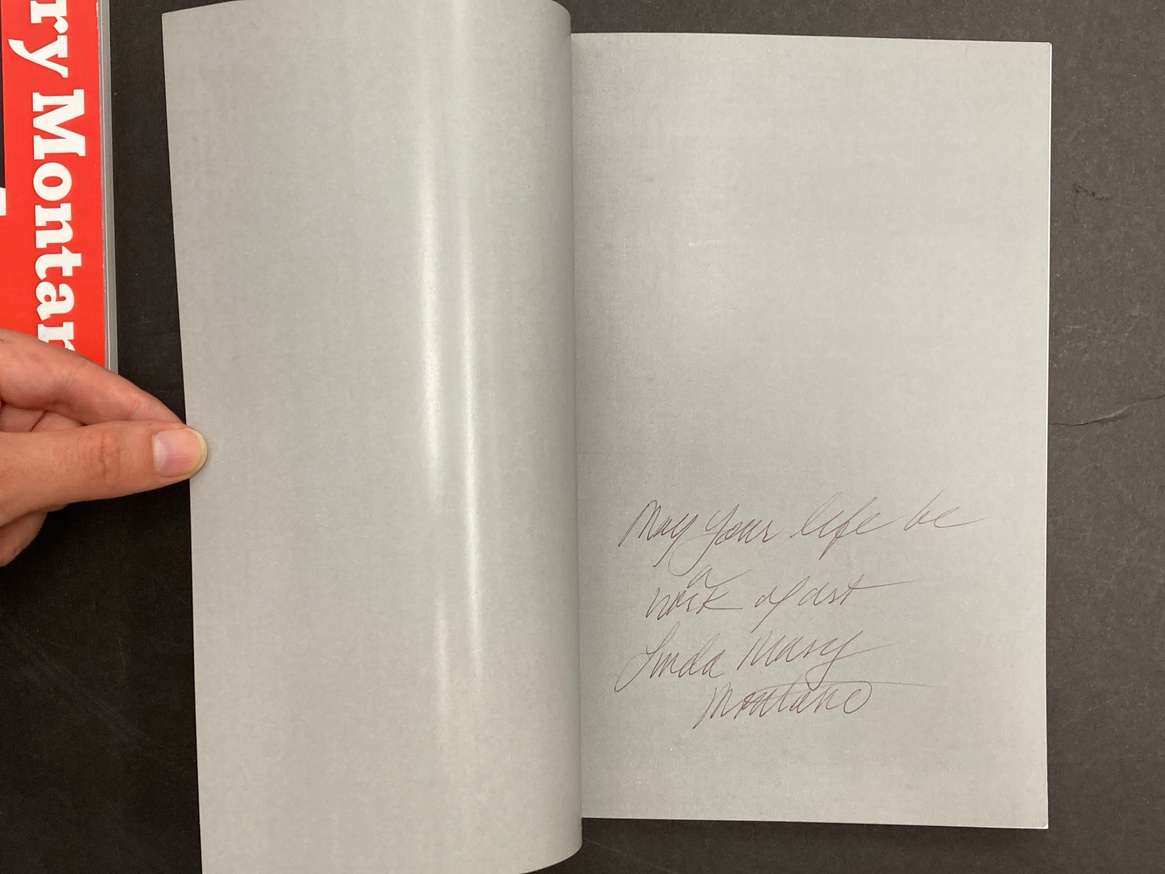 ry Montan
May your life be
a
work of art
Linda Mary
Montano